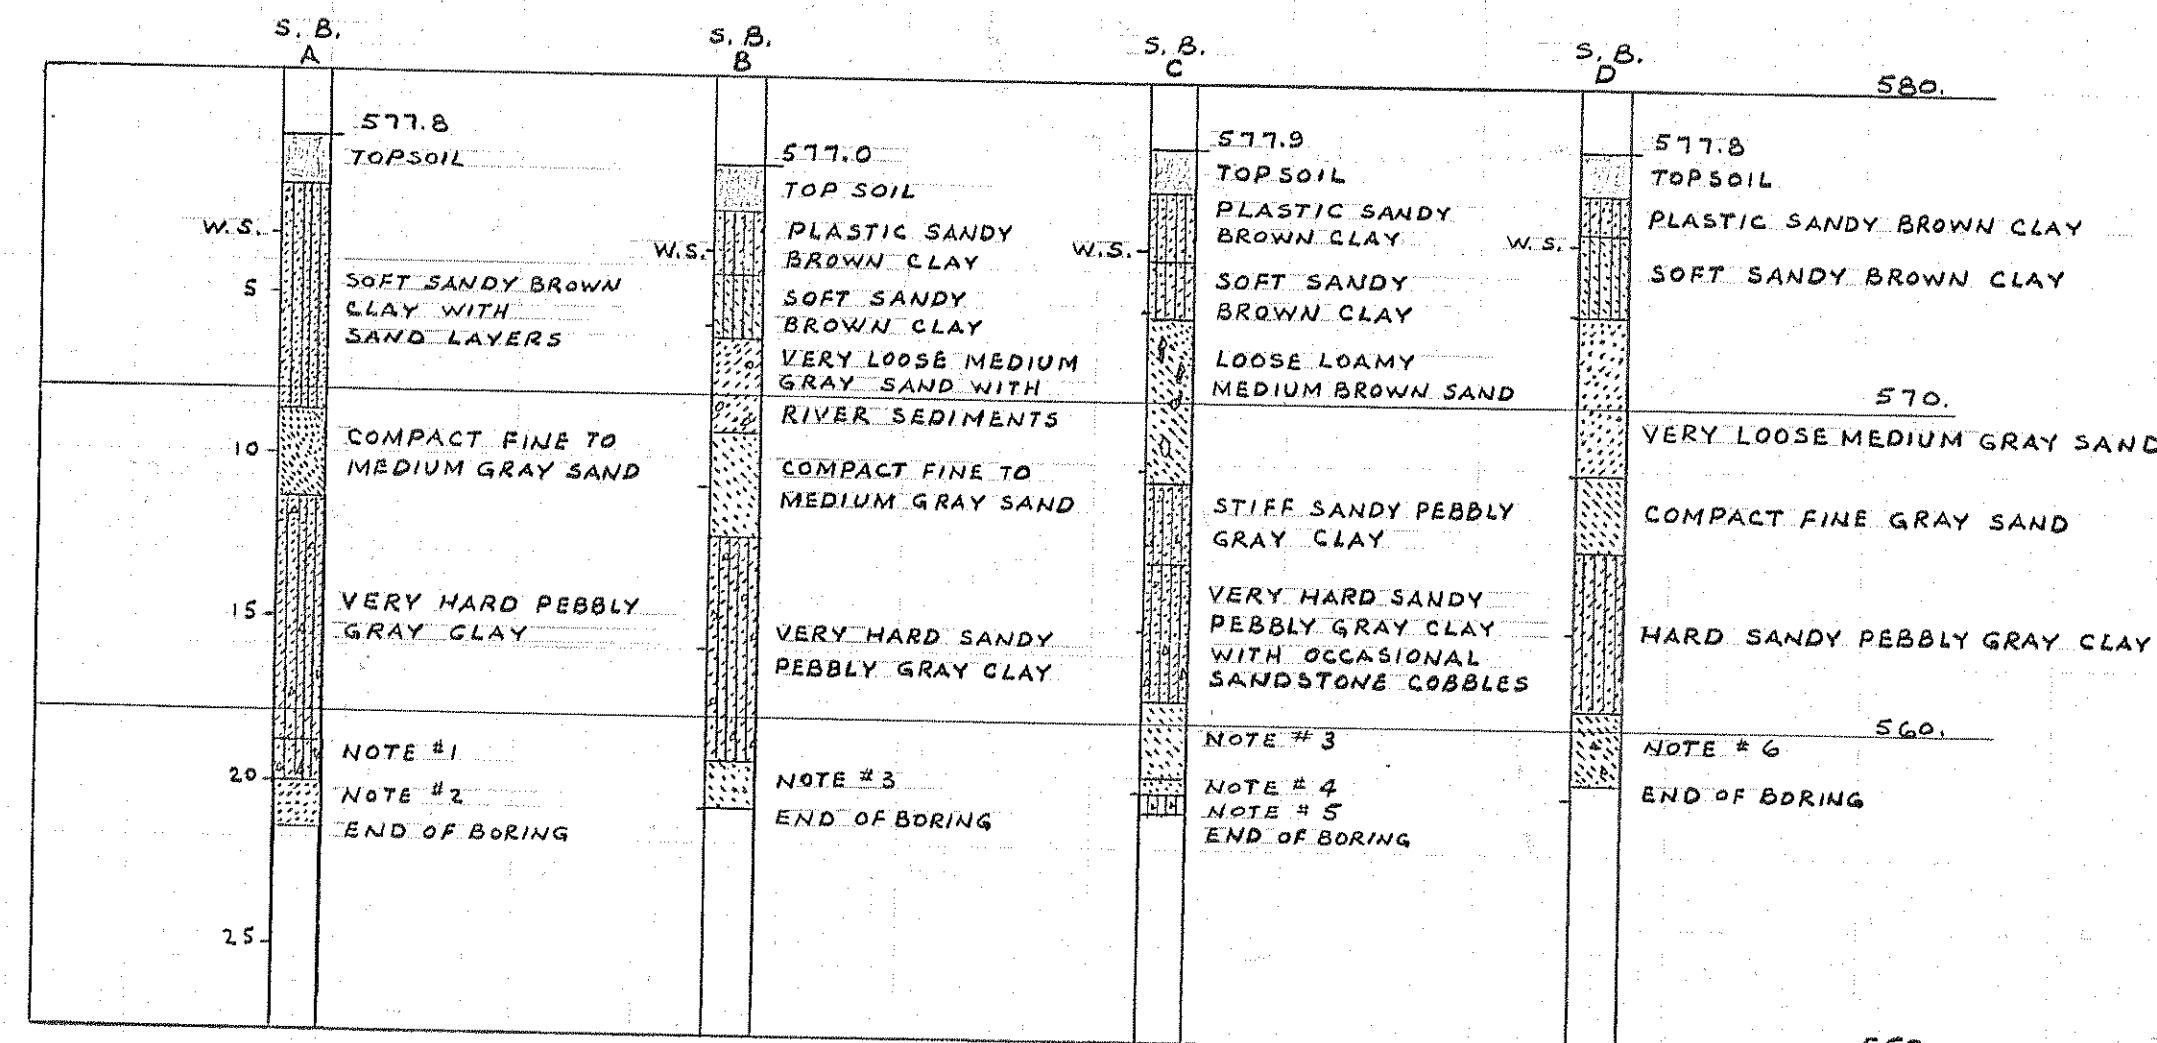 S. B.
A
S. B.
B
S. B.
C
S. B.
D
580.
577.8
TOPSOIL
W.S.
5
SOFT SANDY BROWN
CLAY WITH
SAND LAYERS
10
COMPACT FINE TO
MEDIUM GRAY SAND
15
VERY HARD PEBBLY
GRAY CLAY
NOTE #1
20
NOTE #2
END OF BORING
25
577.0
TOP SOIL
W.S.
PLASTIC SANDY
BROWN CLAY
SOFT SANDY
BROWN CLAY
VERY LOOSE MEDIUM
GRAY SAND WITH
RIVER SEDIMENTS
COMPACT FINE TO
MEDIUM GRAY SAND
VERY HARD SANDY
PEBBLY GRAY CLAY
NOTE #3
END OF BORING
577.9
TOPSOIL
PLASTIC SANDY
BROWN CLAY
W.S.
SOFT SANDY
BROWN CLAY
LOOSE LOAMY
MEDIUM BROWN SAND
STIFF SANDY PEBBLY
GRAY CLAY
VERY HARD SANDY
PEBBLY GRAY CLAY
WITH OCCASIONAL
SANDSTONE COBBLES
NOTE # 3
NOTE # 4
NOTE # 5
END OF BORING
577.8
TOPSOIL
PLASTIC SANDY BROWN CLAY
W.S.
SOFT SANDY BROWN CLAY
570.
VERY LOOSE MEDIUM GRAY SAND
COMPACT FINE GRAY SAND
HARD SANDY PEBBLY GRAY CLAY
560.
NOTE # 6
END OF BORING